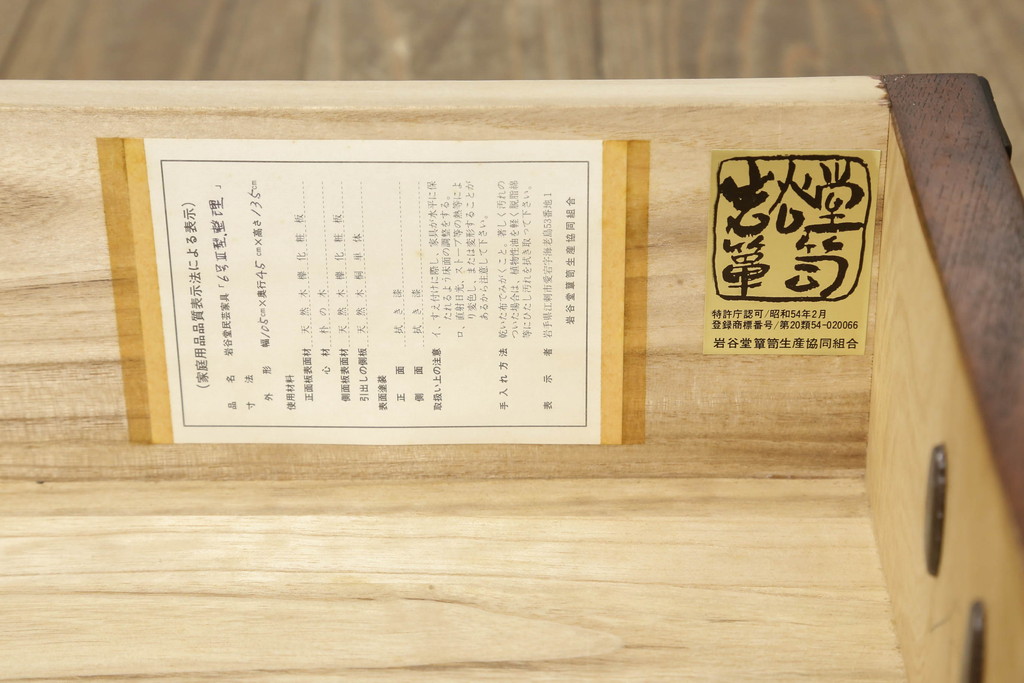 （家庭用品品質表示法による表示）
品名 岩谷堂民芸家具「6号Ⅱ型,整理」
寸法 幅105cm×奥行45cm×高さ135cm
外形
使用材料
正面板表面材 天然木欅化粧板
心材 朴の木
側面板表面材 天然木欅化粧板
引出しの側板 天然木桐単体
表面塗装
正面 拭き漆
側面 拭き漆
取扱い上の注意 イ、すえ付けに際し、家具が水平に保
たれるよう床面の調整をする。
ロ、直射日光、ストーブ等の熱等によ
り変色し、または変形することが
あるから注意して下さい。
手入れ方法 乾いた布でみがくこと。著しく汚れの
ついた場合は、植物性油を軽く脱脂綿
等にひたし汚れを拭き取って下さい。
表示者 岩手県江刺市愛宕字海老島53番地1
岩谷堂簞笥生産協同組合
岩谷堂
簞笥
特許庁認可/昭和54年2月
登録商標番号/第20類54-020066
岩谷堂簞笥生産協同組合